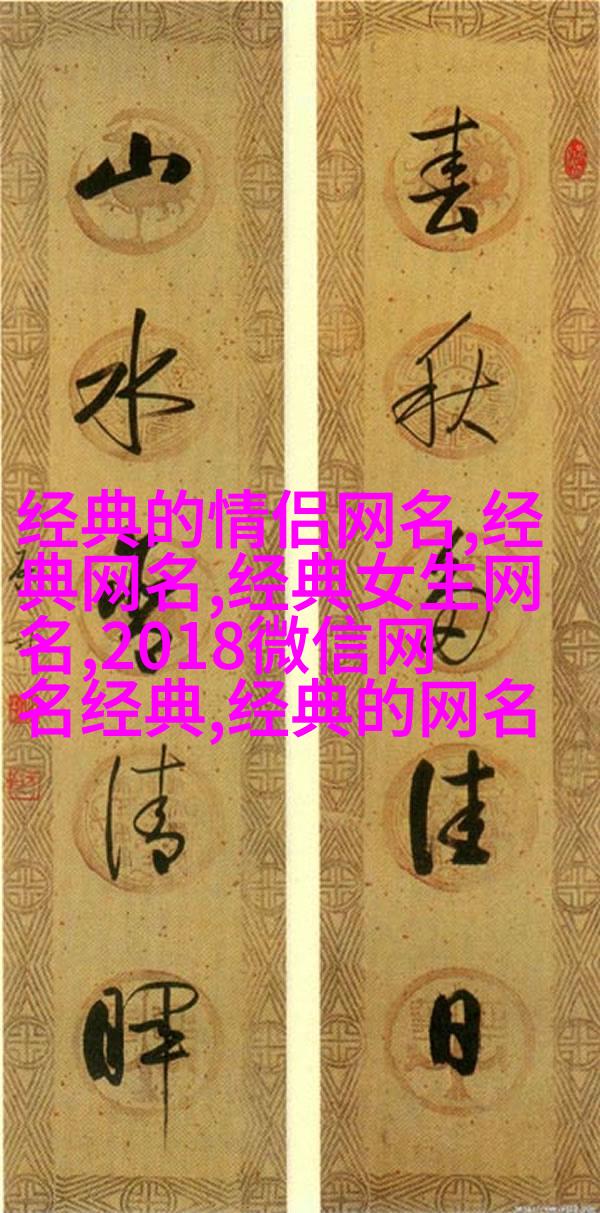 春秋多佳日
山水清暉
经典的情侣网名,经
典网名,经典女生网
名,2018微信网
名经典,经典的网名